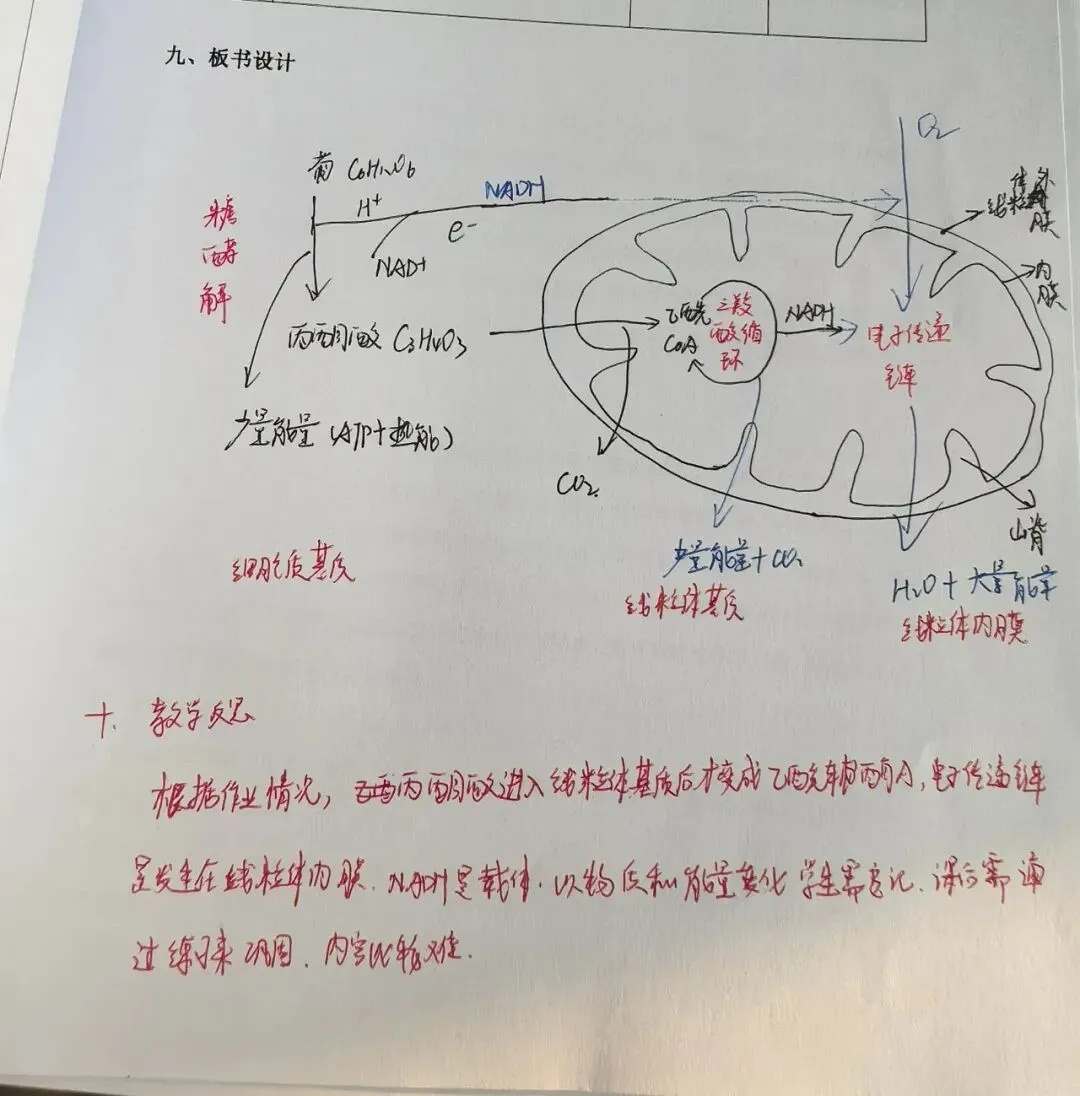 九、板书设计
O₂
葡 C6H12O6
H⁺
NADH
e⁻
NAD+
糖酵解
外膜
内膜
丙酮酸 C3H4O3
乙酰CoA
三羧酸循环
NADH
电子传递链
少量能量(ATP+热能)
CO₂
山脊
细胞质基质
少量能量+CO₂
线粒体基质
H₂O+大量能量
线粒体内膜
十. 教学反思
根据作业情况, 丙酮酸进入线粒体基质后才变成乙酰辅酶A, 电子传递链
是发生在线粒体内膜. NADH是载体. 以物质和能量变化 学生需牢记. 课后需通
过练习来巩固. 内容比较难.